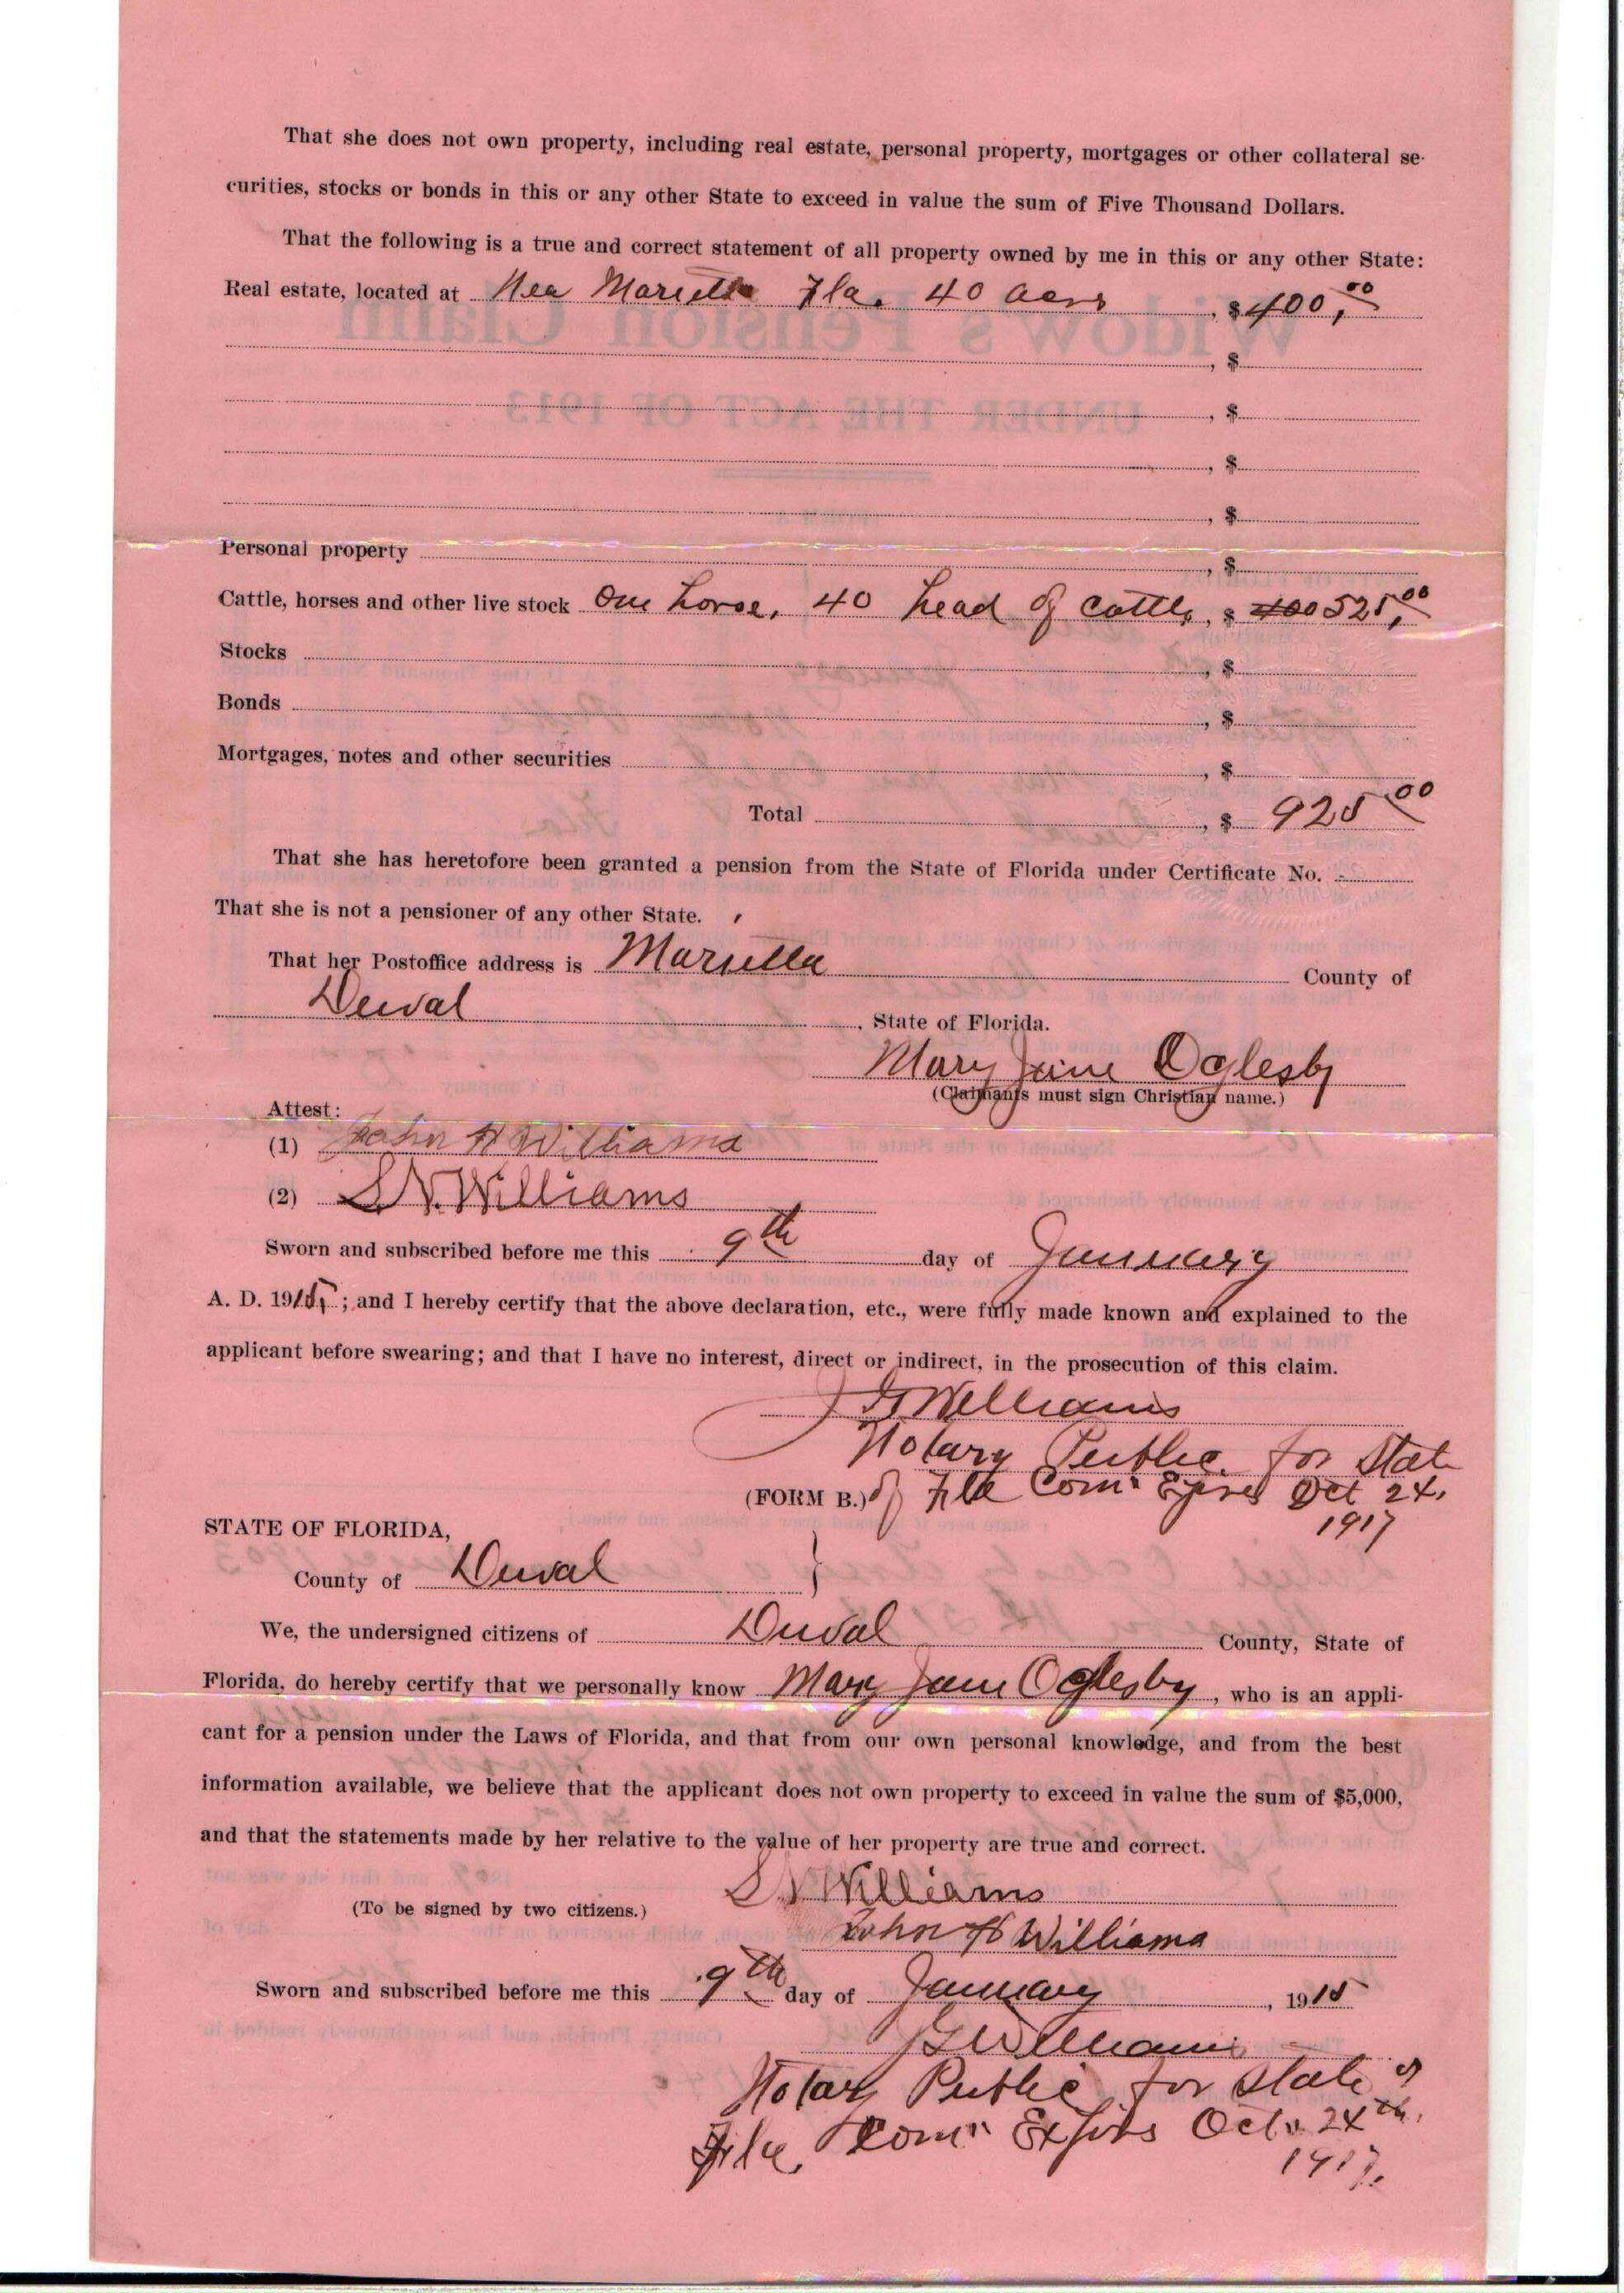 That she does not own property, including real estate, personal property, mortgages or other collateral se-
curities, stocks or bonds in this or any other State to exceed in value the sum of Five Thousand Dollars.
That the following is a true and correct statement of all property owned by me in this or any other State:
Real estate, located at Nea Marietta Fla. 40 acers , $ 400,00
, $
, $
, $
, $
Personal property , $
Cattle, horses and other live stock One horse, 40 head of cattle , $ 400 525,00
Stocks , $
Bonds , $
Mortgages, notes and other securities , $
Total , $ 925 00
That she has heretofore been granted a pension from the State of Florida under Certificate No.
That she is not a pensioner of any other State.
That her Postoffice address is Marietta County of
Duval , State of Florida.
Mary Jane Oglesby
(Claimants must sign Christian name.)
Attest:
(1) John H Williams
(2) S N. Williams
Sworn and subscribed before me this 9th day of January
A. D. 1915, ; and I hereby certify that the above declaration, etc., were fully made known and explained to the
applicant before swearing; and that I have no interest, direct or indirect, in the prosecution of this claim.
J G Williams
Notary Public for State
(FORM B.) of Fla Com Expires Oct 24,
1917
STATE OF FLORIDA,
County of Duval }
We, the undersigned citizens of Duval County, State of
Florida, do hereby certify that we personally know Mary Jane Oglesby , who is an appli-
cant for a pension under the Laws of Florida, and that from our own personal knowledge, and from the best
information available, we believe that the applicant does not own property to exceed in value the sum of $5,000,
and that the statements made by her relative to the value of her property are true and correct.
S N Williams
(To be signed by two citizens.)
John H Williams
Sworn and subscribed before me this 9th day of January , 1915
J G Williams
Notary Public for State of
Fla, Com Expires Oct. 24th,
1917.